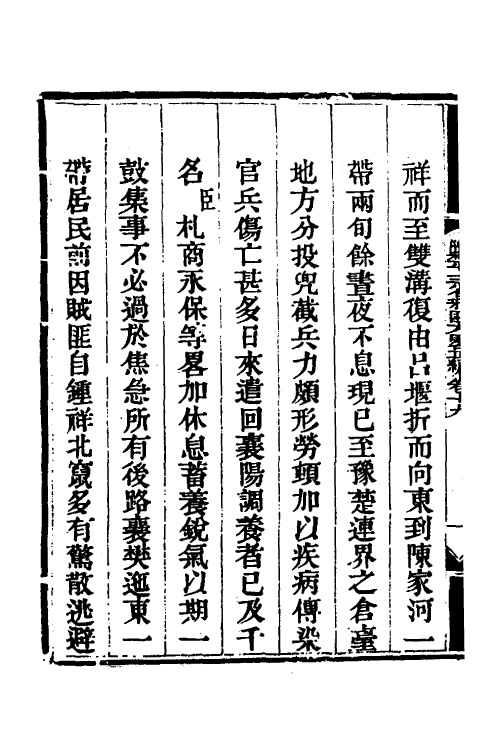 祥而至雙溝復由呂堰折而向東到陳家河一
帶兩旬餘晝夜不息現已至豫楚連界之倉臺
地方分投兜截兵力頗形勞頓加以疾病傳染
官兵傷亡甚多日來遣回襄陽調養者已及千
名臣札商永保等畧加休息蓄養銳氣以期一
鼓集事不必過於焦急所有後路襄樊迤東一
帶居民前因賊匪自鍾祥北竄多有驚散逃避